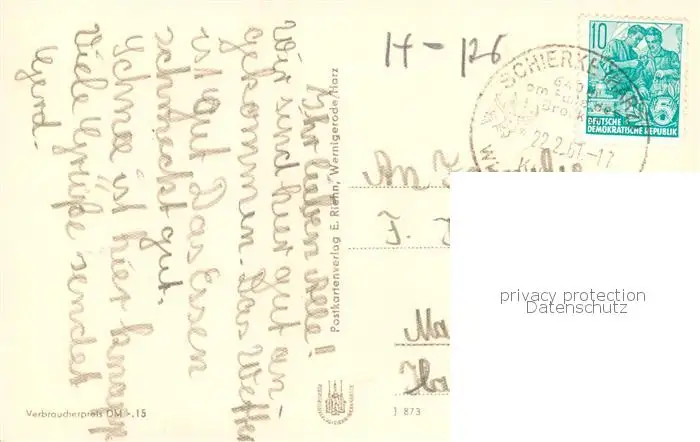 Ihr lieben alle!
Wir sind hier gut an-
gekommen. Das Wetter
ist gut Das Essen
schmeckt gut.
Schnee ist hier knapp
Viele Grüße sendet
Gerd.
Postkartenverlag E. Riehn, Wernigerode/Harz
H - 126
SCHIERKE/HARZ
22.2.61.-17
10
DEUTSCHE
DEMOKRATISCHE REPUBLIK
An Familie
F.
Ma
Ha
privacy protection
Datenschutz
Verbraucherpreis DM -.15
J 873